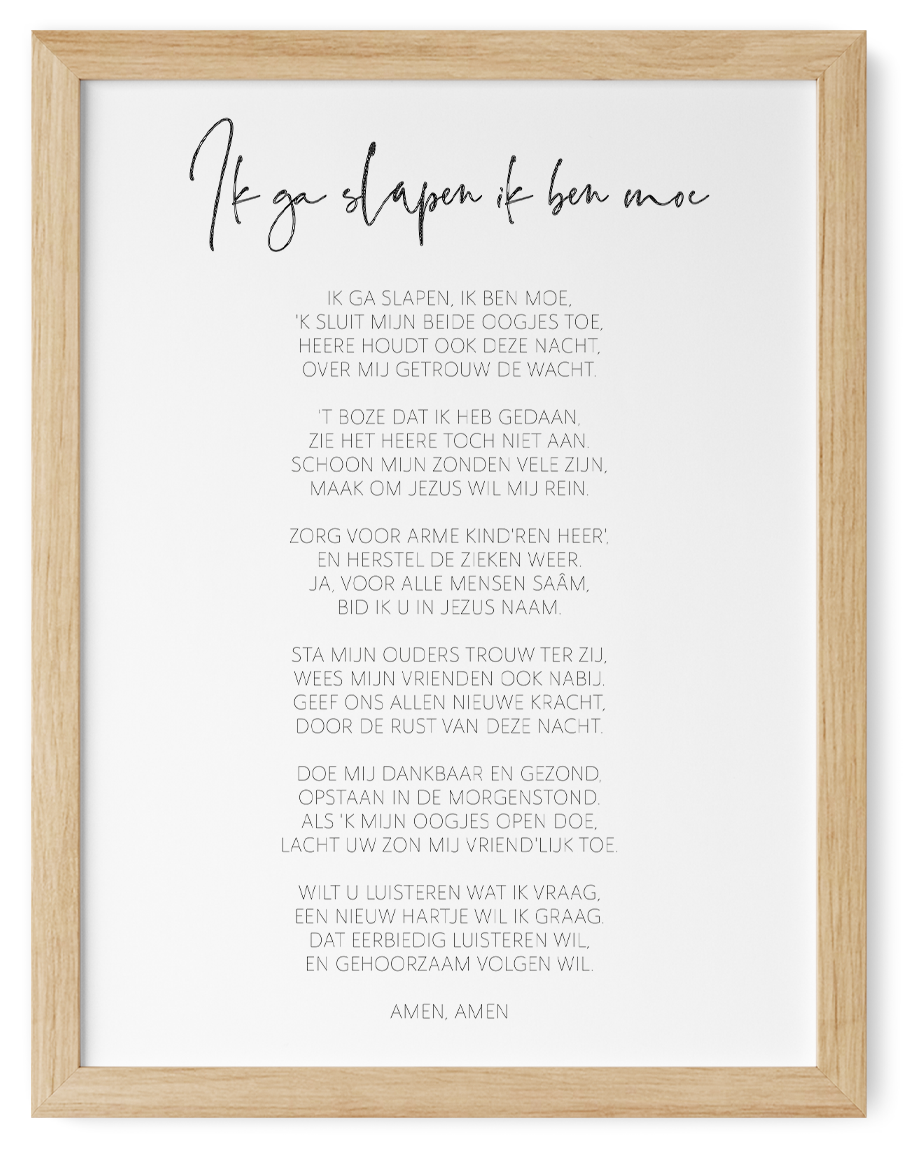 Ik ga slapen ik ben moe
IK GA SLAPEN, IK BEN MOE,
'K SLUIT MIJN BEIDE OOGJES TOE,
HEERE HOUDT OOK DEZE NACHT,
OVER MIJ GETROUW DE WACHT.
'T BOZE DAT IK HEB GEDAAN,
ZIE HET HEERE TOCH NIET AAN.
SCHOON MIJN ZONDEN VELE ZIJN,
MAAK OM JEZUS WIL MIJ REIN.
ZORG VOOR ARME KIND'REN HEER',
EN HERSTEL DE ZIEKEN WEER.
JA, VOOR ALLE MENSEN SAÂM,
BID IK U IN JEZUS NAAM.
STA MIJN OUDERS TROUW TER ZIJ,
WEES MIJN VRIENDEN OOK NABIJ.
GEEF ONS ALLEN NIEUWE KRACHT,
DOOR DE RUST VAN DEZE NACHT.
DOE MIJ DANKBAAR EN GEZOND,
OPSTAAN IN DE MORGENSTOND.
ALS 'K MIJN OOGJES OPEN DOE,
LACHT UW ZON MIJ VRIEND'LIJK TOE.
WILT U LUISTEREN WAT IK VRAAG,
EEN NIEUW HARTJE WIL IK GRAAG.
DAT EERBIEDIG LUISTEREN WIL,
EN GEHOORZAAM VOLGEN WIL.
AMEN, AMEN